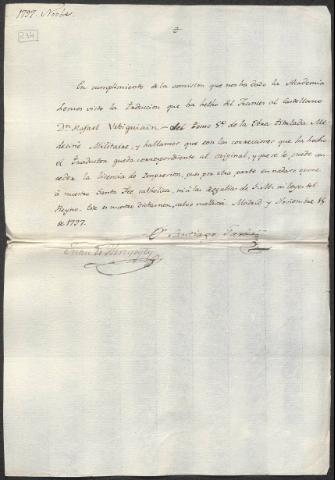 1797. Novbe.
234
En cumplimiento de la comision que nos ha dado la Academia
hemos visto la traducion que ha hecho del Frances al Castellano
Dn. Rafael del tomo 5º de la Obra titulada Me-
decine Militaire, y hallamos que con las correcciones que ha hecho
el Traductor queda correspondiente al original, y que se le puede con-
ceder la licencia de Impresion, pues por otra parte en nada se opone
á nuestra Santa Fee catholica, ni á las Regalias de S. M. ni leyes del
Reyno. Este es nuestro dictamen, salvo meliori. Madrid y Noviembre 15
de 1797.
Dr. Santiago Garcia
Juan de